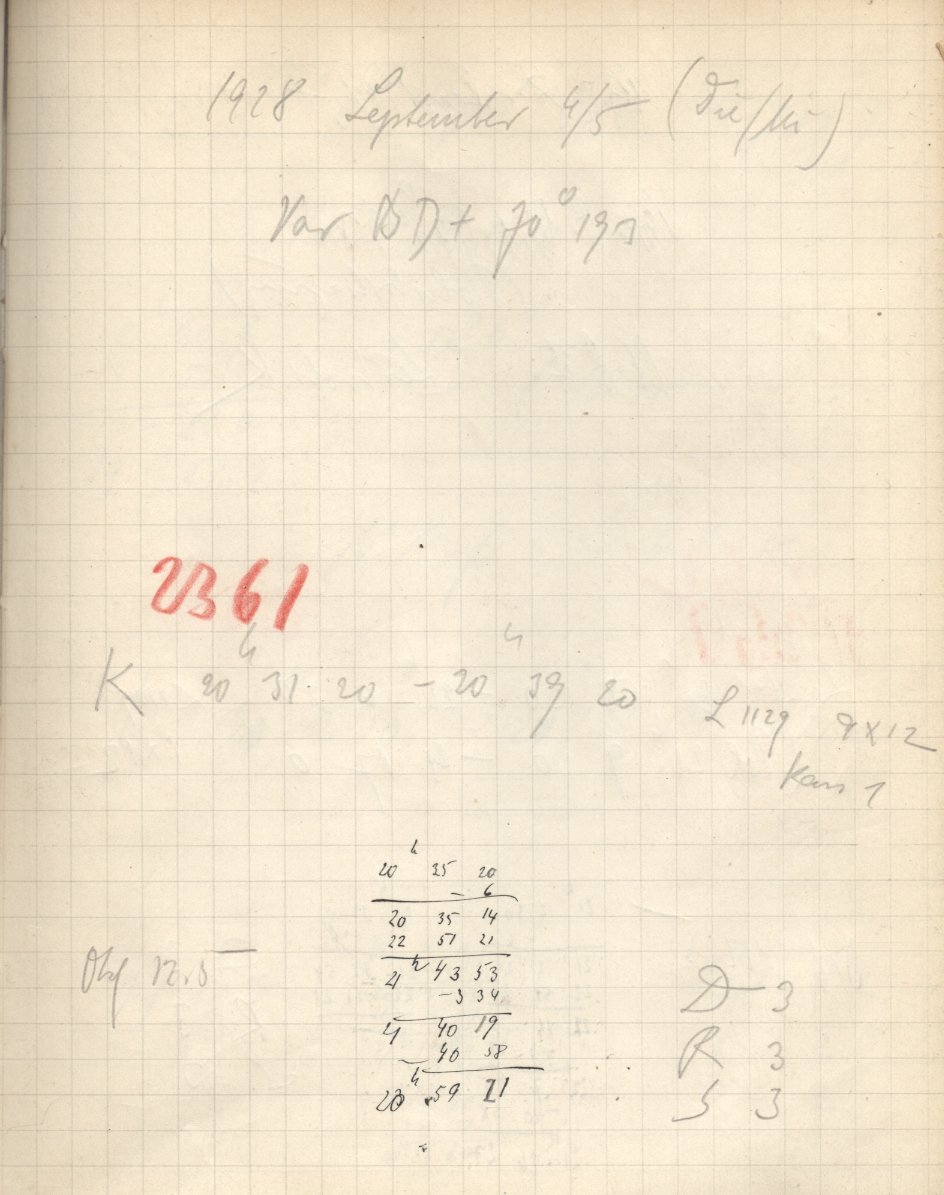 1928 September 4/5 (Die/Mi)
Var BD + 70°
2361
K 20h 31 20 – 20h 39 20
L 1129 9x12
Kass 1
20h 35 20
– 6
20 35 14
22 51 21
21h 43 53
–3 34
21 40 19
– 40 58
20h 59 21
12.5
D 3
R 3
S 3